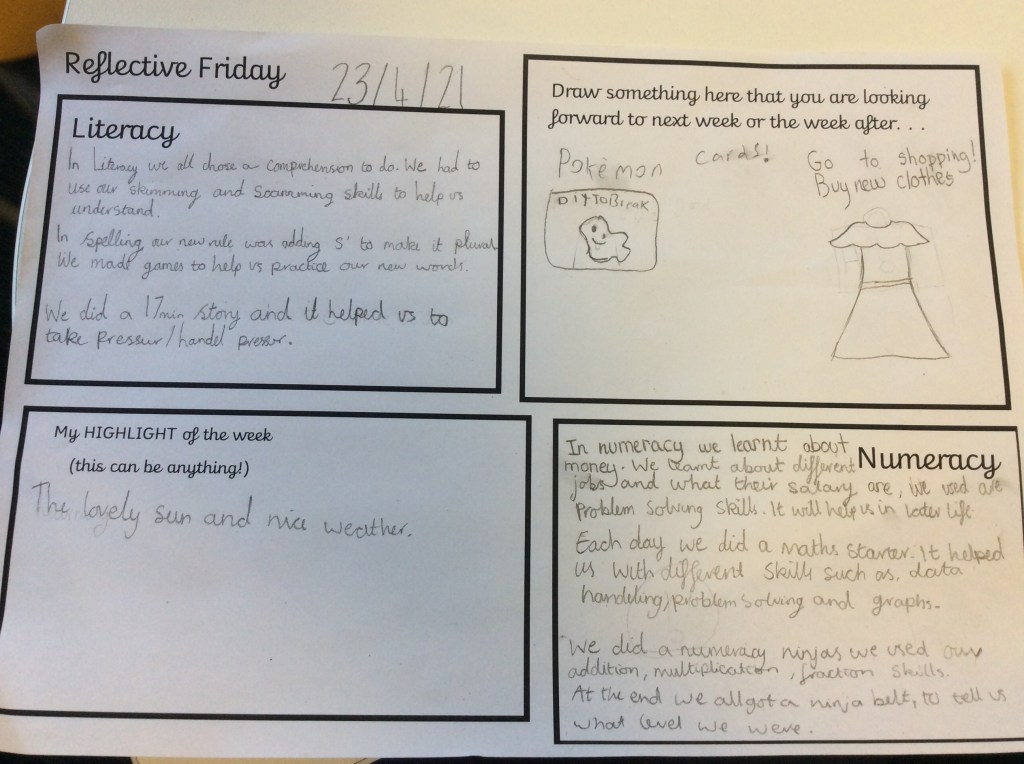 Reflective Friday 23/4/21
Literacy
In Literacy we all chose a comprehension to do. We had to
use our skimming and Scannming skills to help us
understand.
In spelling our new rule was adding S' to make it plural
We made games to help us practice our new words.
We did a 17min story and it helped us to
take pressur/handel pressr.
Draw something here that you are looking
forward to next week or the week after. . .
Pokémon cards!
Go to shopping!
Buy new clothes
DIYToBreak
My HIGHLIGHT of the week
(this can be anything!)
The lovely sun and nice weather.
Numeracy
In numeracy we learnt about
money. We learnt about different
jobs and what their salary are, we used are
Problem Solving Skills. It will help us in later life
Each day we did a maths starter. It helped
us with different skills such as, data
handeling, problem solving and graphs.
We did a numeracy ninjas we used our
addition, multiplication, fraction skills.
At the end we all got a ninja belt, to tell us
what level we were.